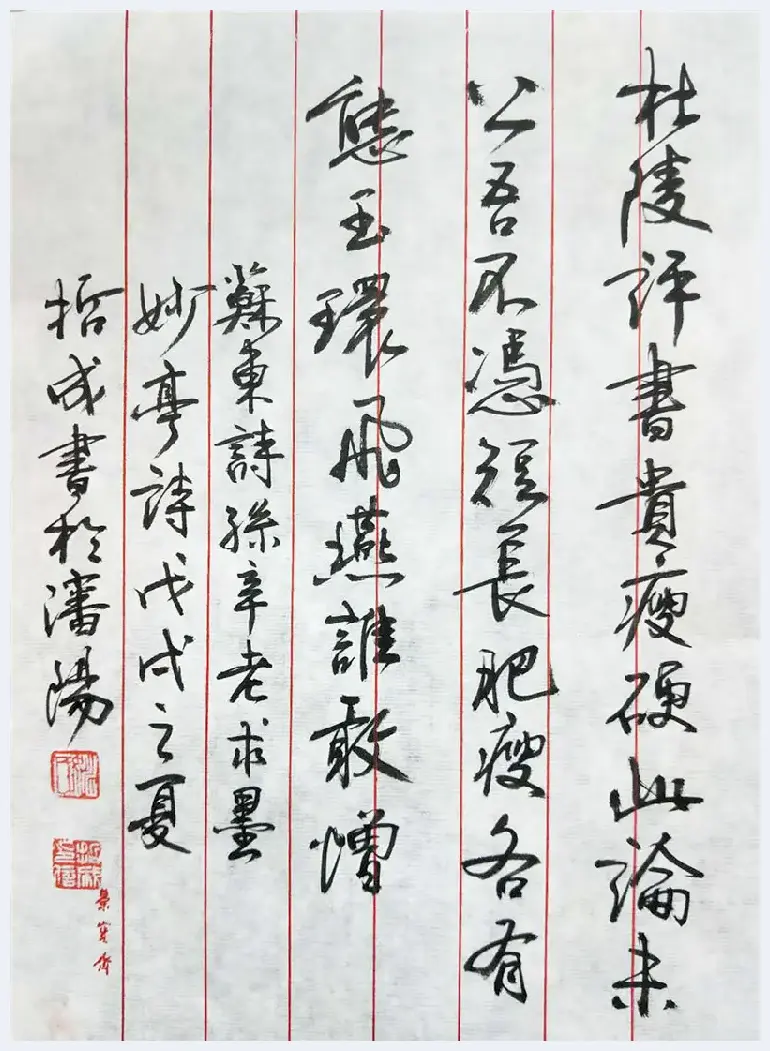 杜陵評書貴瘦硬此論未
公吾不憑短長肥瘦各有
態玉環飛燕誰敢憎
蘇東詩孫辛老求墨
妙亭詩戊戌之夏
哲成書於瀋陽